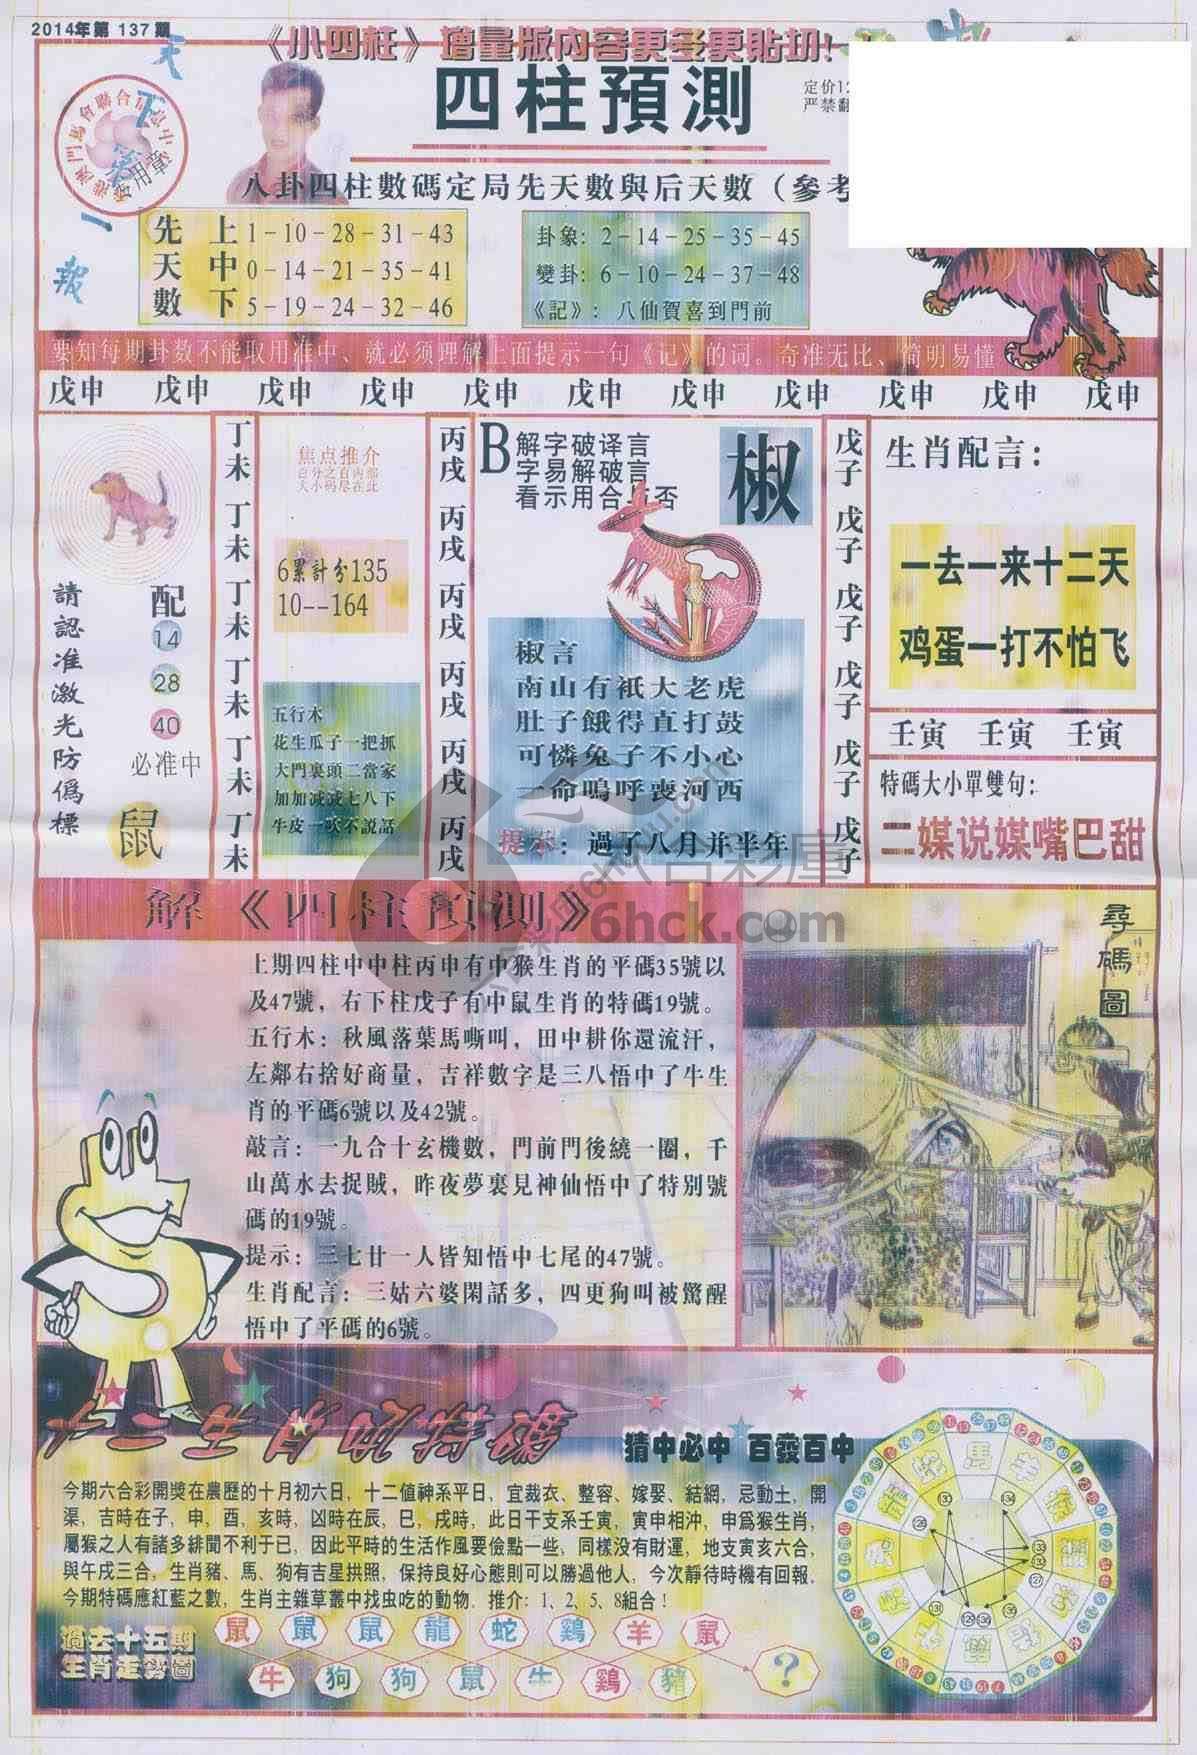 2014年第 137 期
《小四柱》增量版內容更多更貼切!
四柱預測
定价12
严禁翻
天
下
第
一
報
八卦四柱數碼定局先天數與后天數（參考
先天數
上 1-10-28-31-43
中 0-14-21-35-41
下 5-19-24-32-46
卦象: 2-14-25-35-45
變卦: 6-10-24-37-48
《記》: 八仙賀喜到門前
要知每期卦数不能取用准中、就必须理解上面提示一句《记》的词。奇准无比、简明易懂
戊申 戊申 戊申 戊申 戊申 戊申 戊申 戊申 戊申 戊申 戊申
請認准激光防僞標
配
14
28
40
必准中
鼠
丁未 丁未 丁未 丁未 丁未 丁未
焦点推介
百分之百内部
大小码尽在此
6累計分135
10--164
五行木
花生瓜子一把抓
大門裏頭二當家
加加减减七八下
牛皮一吹不說話
丙戌 丙戌 丙戌 丙戌 丙戌 丙戌
B
解字破译言
字易解破言
看示用合与否
椒
椒言
南山有祇大老虎
肚子餓得直打鼓
可憐兔子不小心
一命嗚呼喪河西
提示: 過了八月并半年
戊子 戊子 戊子 戊子 戊子 戊子
生肖配言:
一去一来十二天
鸡蛋一打不怕飞
壬寅 壬寅 壬寅
特碼大小單雙句:
二媒说媒嘴巴甜
6hck.com
解《四柱預測》
上期四柱中申柱丙申有中猴生肖的平碼35號以
及47號，右下柱戊子有中鼠生肖的特碼19號。
五行木: 秋風落葉馬嘶叫，田中耕你還流汗，
左鄰右捨好商量，吉祥數字是三八悟中了牛生
肖的平碼6號以及42號。
敲言: 一九合十玄機數，門前門後繞一圈，千
山萬水去捉賊，昨夜夢裏見神仙悟中了特別號
碼的19號。
提示: 三七廿一人皆知悟中七尾的47號。
生肖配言: 三姑六婆閑話多，四更狗叫被驚醒
悟中了平碼的6號。
尋碼圖
猜中必中 百發百中
今期六合彩開獎在農歷的十月初六日，十二值神系平日，宜裁衣、整容、嫁娶、結網，忌動土，開
渠，吉時在子，申，酉，亥時，凶時在辰，巳，戌時，此日干支系壬寅，寅申相沖，申爲猴生肖，
屬猴之人有諸多緋聞不利于已，因此平時的生活作風要儉點一些，同樣没有財運，地支寅亥六合，
與午戌三合，生肖豬、馬、狗有吉星拱照，保持良好心態則可以勝過他人，今次靜待時機有回報，
今期特碼應紅藍之數，生肖主雜草叢中找虫吃的動物，推介: 1、2、5、8組合!
過去十五期
生肖走勢圖
鼠 鼠 鼠 龍 蛇 鷄 羊 鼠
牛 狗 狗 鼠 牛 鷄 豬 ?